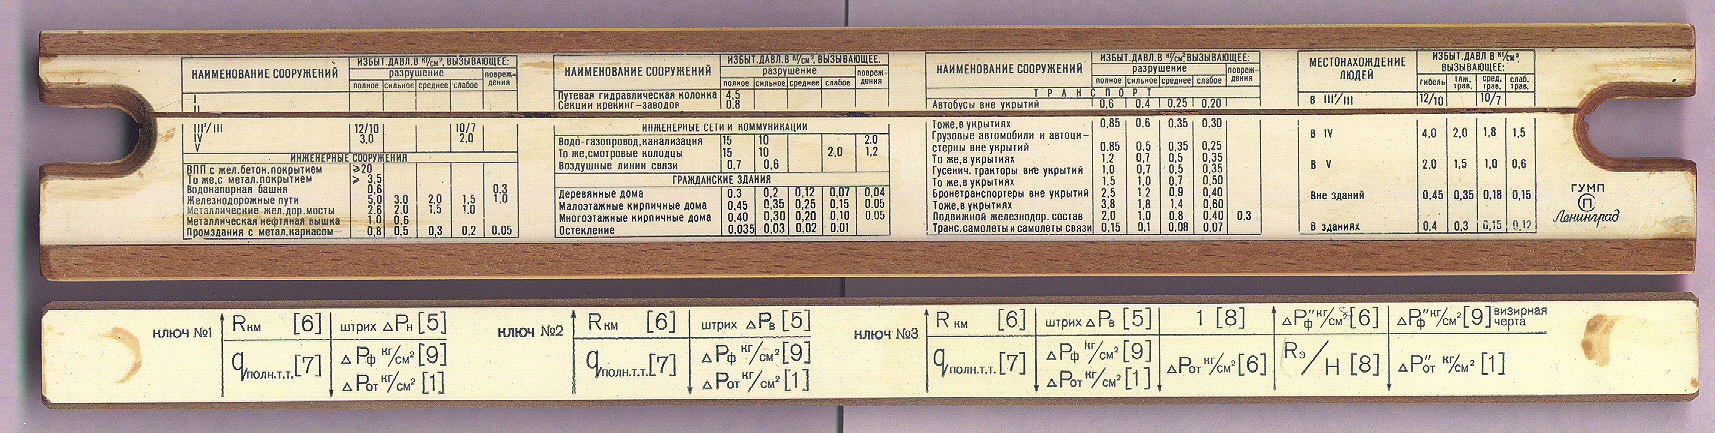 НАИМЕНОВАНИЕ СООРУЖЕНИЙ
ИЗБЫТ.ДАВЛ.В кг/см², ВЫЗЫВАЮЩЕЕ:
разрушение повреж-дения
полное сильное среднее слабое
I
II
III'/III 12/10 10/7
V 3.0 2.0
V
ИНЖЕНЕРНЫЕ СООРУЖЕНИЯ
ВПП с жел.бетон.покрытием ⩾20
То же,с метал.покрытием ⩾ 3,5
Водонапорная башня 0,6 0.3
Железнодорожные пути 5,0 3.0 2,0 1,5 1,0
Металлические жел.дор.мосты 2,6 2,0 1,5 1,0
Металлическая нефтяная вышка 1,0 0,6
Промздания с метал.каркасом 0,8 0,5 0,3 0,2 0,05
НАИМЕНОВАНИЕ СООРУЖЕНИЙ
ИЗБЫТ.ДАВЛ.В кг/см², ВЫЗЫВАЮЩЕЕ:
разрушение повреж-дения
полное сильное среднее слабое
Путевая гидравлическая колонка 4,5
Секции крекинг-заводов 0.8
ИНЖЕНЕРНЫЕ СЕТИ И КОММУНИКАЦИИ
Водо-газопровод,канализация 15 10 2.0
То же,смотровые колодцы 15 10 2,0 1,2
Воздушные линии связи 0,7 0,6
ГРАЖДАНСКИЕ ЗДАНИЯ
Деревянные дома 0.3 0.2 0,12 0,07 0,04
Малоэтажные кирпичные дома 0,45 0,35 0,25 0,15 0.05
Многоэтажные кирпичные дома 0,40 0,30 0,20 0,10 0.05
Остекление 0,035 0,03 0,02 0,01
НАИМЕНОВАНИЕ СООРУЖЕНИЙ
ИЗБЫТ.ДАВЛ.В кг/см² ВЫЗЫВАЮЩЕЕ:
разрушение повреж-дения
полное сильное среднее слабое
ТРАНСПОРТ
Автобусы вне укрытий 0,6 0,4 0,25 0,20
Тоже,в укрытиях 0,85 0,6 0,35 0,30
Грузовые автомобили и автоци-
стерны вне укрытий 0.85 0,5 0,35 0,25
То же,в укрытиях 1,2 0,7 0,5 0,35
Гусенич. тракторы вне укрытий 1,0 0,7 0,5 0,35
То же,в укрытиях 1,5 1,0 0,7 0,50
Бронетранспортеры вне укрытий 2,5 1,2 0,9 0,40
Тоже,в укрытиях 3,8 1,8 1,4 0,60
Подвижной железнодор. состав 2,0 1,0 0,8 0,40 0,3
Транс.самолеты и самолеты связи 0,15 0,1 0,08 0,07
МЕСТОНАХОЖДЕНИЕ ЛЮДЕЙ
ИЗБЫТ.ДАВЛ.В кг/см², ВЫЗЫВАЮЩЕЕ:
гибель тяж. трав. сред. трав. слаб. трав.
В III'/III 12/10 10/7
В IV 4,0 2,0 1,8 1,5
В V 2,0 1,5 1,0 0,6
Вне зданий 0,45 0,35 0,18 0,15
В зданиях 0,4 0,3 0,15 0,12
ГУМП
П
Ленинград
КЛЮЧ №1
Rкм [6] штрих ΔPн [5]
q/полн.т.т. [7] ΔPф кг/см² [9]
ΔPот кг/см² [1]
КЛЮЧ №2
Rкм [6] штрих ΔPв [5]
q/полн.т.т. [7] ΔPф кг/см² [9]
ΔPот кг/см² [1]
КЛЮЧ №3
Rкм [6] штрих ΔPв [5] 1 [8] ΔPф'' кг/см² [6] ΔPф'' кг/см² [9] визирная черта
q/полн.т.т. [7] ΔPф кг/см² [9] ΔPот кг/см² [6] Rэ/H [8] ΔPот'' кг/см² [1]
ΔPот кг/см² [1]